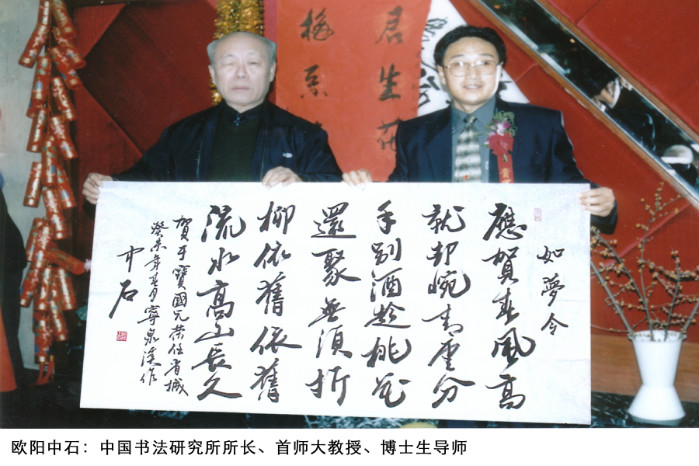 如夢令
應賀春風高
就却惋青雲分
手别酒趁桃花
還聚無須折
柳依舊依舊
流水高山長久
賀于寶國兄榮任省城
癸未年 月寧泉漢作
中石
欧阳中石：中国书法研究所所长、首师大教授、博士生导师